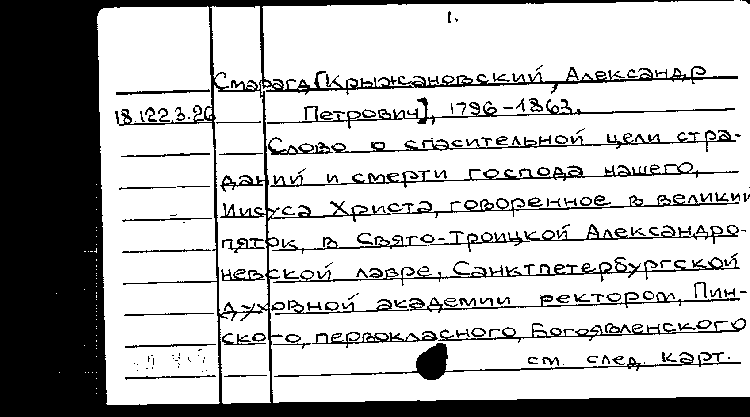 1.
Смарагд [Крыжановский, Александр
18.122.3.26 Петрович], 1796-1863.
Слово о спасительной цели стра-
даний и смерти господа нашего,
Иисуса Христа, говоренное в великий
пяток, в Свято-Троицкой Александро-
невской лавре, Санктпетербургской
духовной академии ректором, Пин-
ского, первокласного, Богоявленского
см. след. карт.